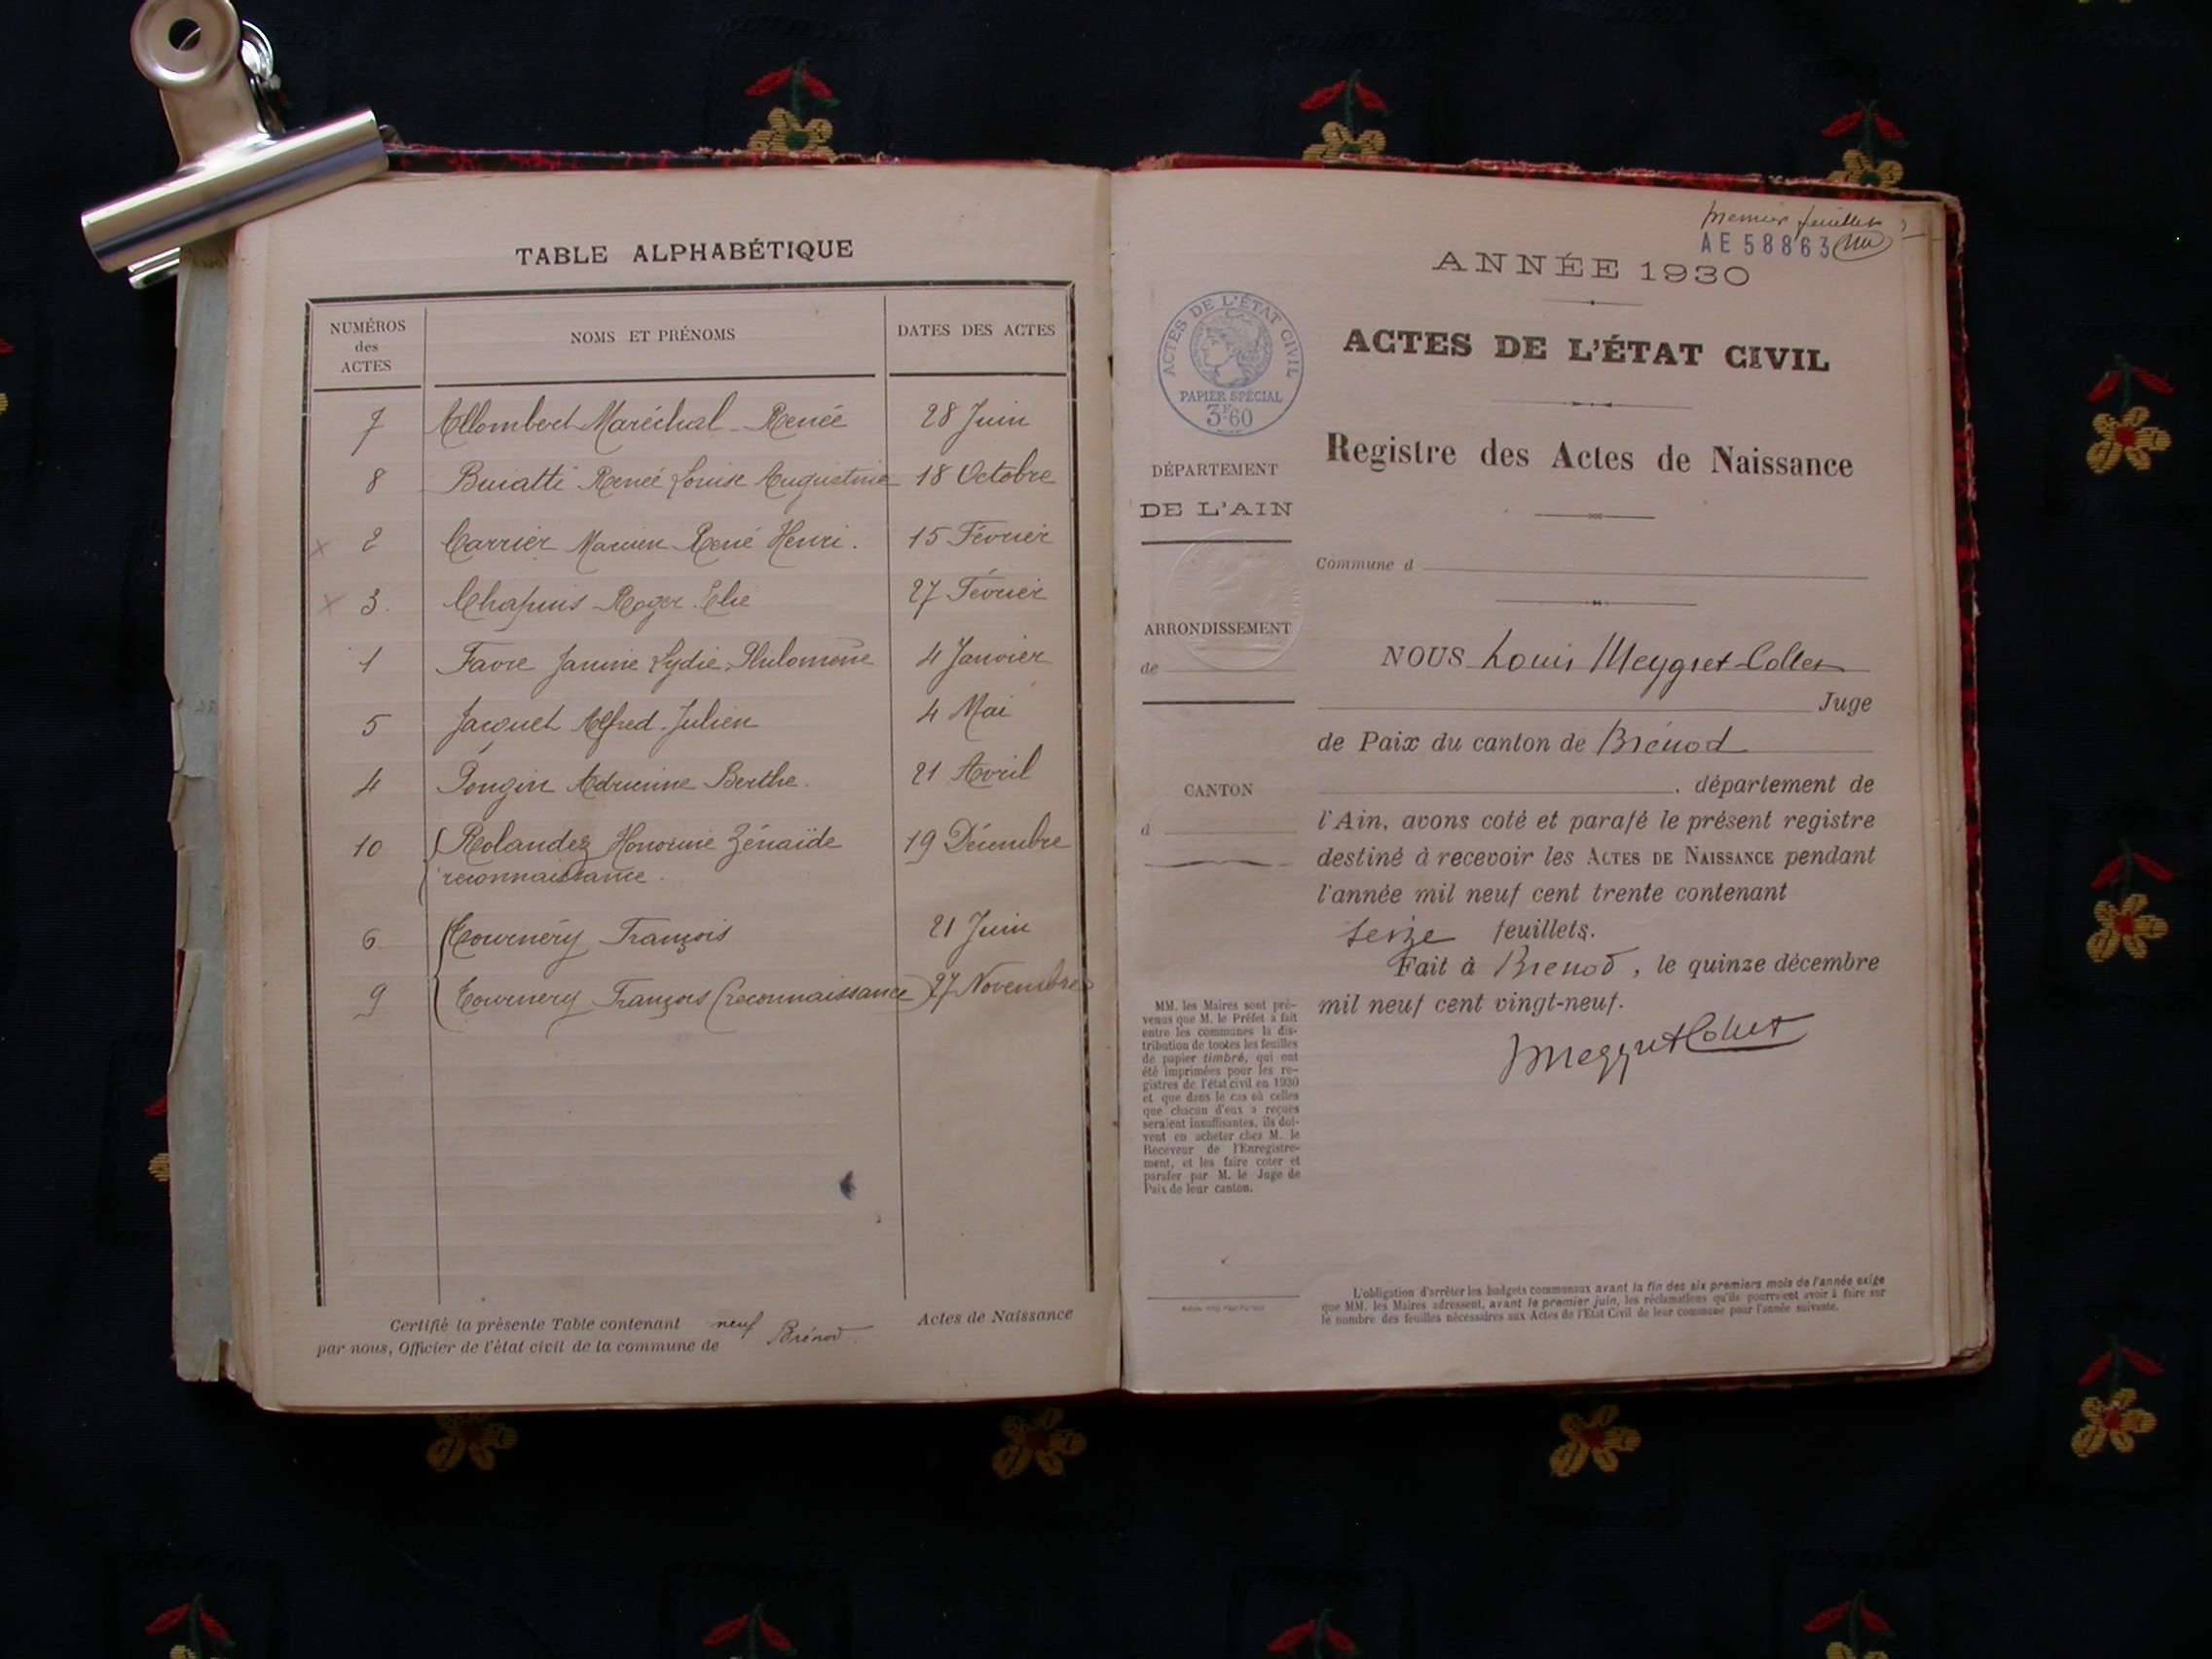 TABLE ALPHABÉTIQUE
NUMÉROS des ACTES
NOMS ET PRÉNOMS
DATES DES ACTES
7 Allombert Maréchal Renée 28 Juin
8 Renée Louise Augustine 18 Octobre
2 Carrier René Henri. 15 Février
3. Chapuis Roger Elie 27 Février
1 Favre Janine Lydie Philomène 4 Janvier
5 Jacquet Alfred Julien 4 Mai
4 Adrienne Berthe. 21 Avril
10 Rolandez Honorine Zénaïde 19 Décembre
reconnaissance.
6 Tournery François 21 Juin
9 Tournery François (reconnaissance) 27 Novembre
Certifié la présente Table contenant neuf Actes de Naissance
par nous, Officier de l'état civil de la commune de Brénod.
premier feuillet
AE 58863
ANNÉE 1930
ACTES DE L'ÉTAT CIVIL
PAPIER SPÉCIAL
3F60
ACTES DE L'ÉTAT CIVIL
Registre des Actes de Naissance
DÉPARTEMENT
DE L'AIN
Commune d
ARRONDISSEMENT
de
CANTON
d
NOUS Louis Meygret-Collet
Juge
de Paix du canton de Brénod
, département de
l'Ain, avons coté et parafé le présent registre
destiné à recevoir les ACTES DE NAISSANCE pendant
l'année mil neuf cent trente contenant
seize feuillets.
Fait à Brenod, le quinze décembre
mil neuf cent vingt-neuf.
Meygret Collet
MM. les Maires sont pré-
venus que M. le Préfet a fait
entre les communes la dis-
tribution de toutes les feuilles
de papier timbré, qui ont
été imprimées pour les re-
gistres de l'état civil en 1930
et que dans le cas où celles
que chacun d'eux a reçues
seraient insuffisantes, ils doi-
vent en acheter chez M. le
Receveur de l'Enregistre-
ment, et les faire coter et
parafer par M. le Juge de
Paix de leur canton.
L'obligation d'arrêter les budgets communaux avant la fin des six premiers mois de l'année exige
que MM. les Maires adressent, avant le premier juin, les réclamations qu'ils pourraient avoir à faire sur
le nombre des feuilles nécessaires aux Actes de l'Etat Civil de leur commune pour l'année suivante.